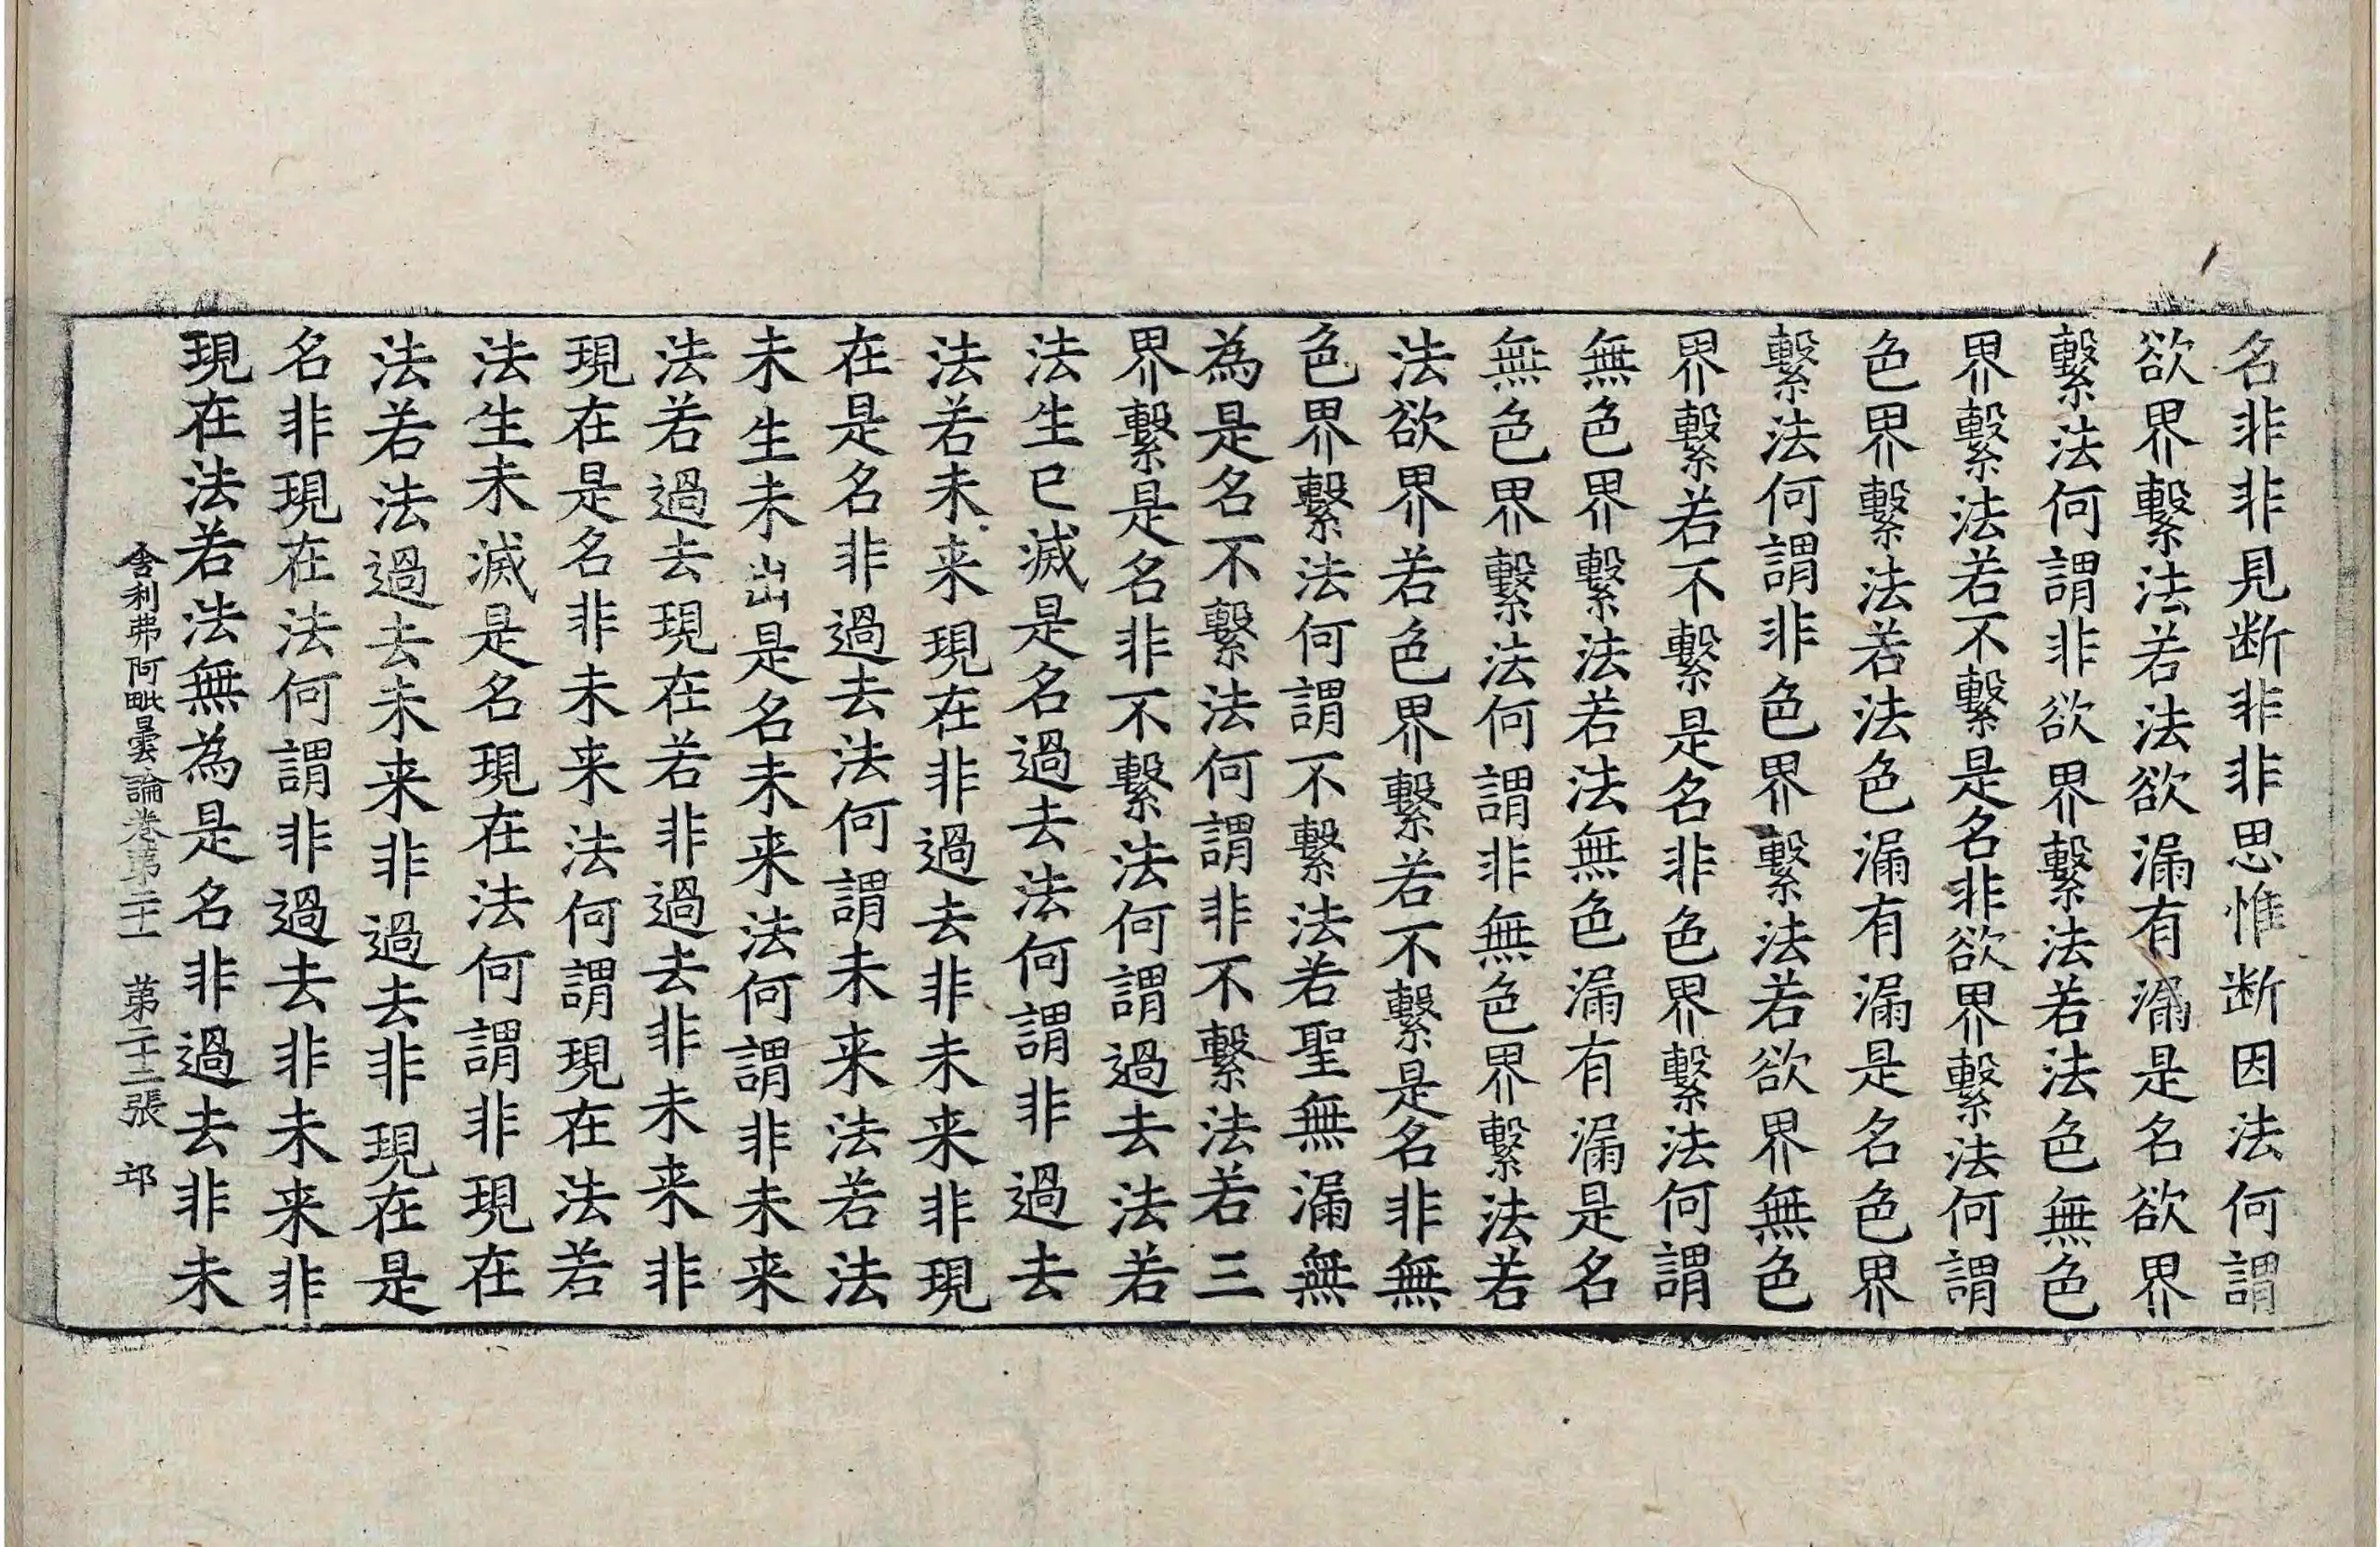 名非非見断非非思惟断因法何謂
欲界繫法若法欲漏有漏是名欲界
繫法何謂非欲界繫法若法色無色
界繫法若不繫是名非欲界繫法何謂
色界繫法若法色漏有漏是名色界
繫法何謂非色界繫法若欲界無色
界繫若不繫是名非色界繫法何謂
無色界繫法若法無色漏有漏是名
無色界繫法何謂非無色界繫法若
法欲界若色界繫若不繫是名非無
色界繫法何謂不繫法若聖無漏無
為是名不繫法何謂非不繫法若三
界繫是名非不繫法何謂過去法若
法生已滅是名過去法何謂非過去
法若未来現在非過去非未来非現
在是名非過去法何謂未来法若法
未生未出是名未来法何謂非未来
法若過去現在若非過去非未来非
現在是名非未来法何謂現在法若
法生未滅是名現在法何謂非現在
法若法過去未来非過去非現在是
名非現在法何謂非過去非未来非
現在法若法無為是名非過去非未
舍利弗阿毗曇論卷第二十一 第二十二張 邛